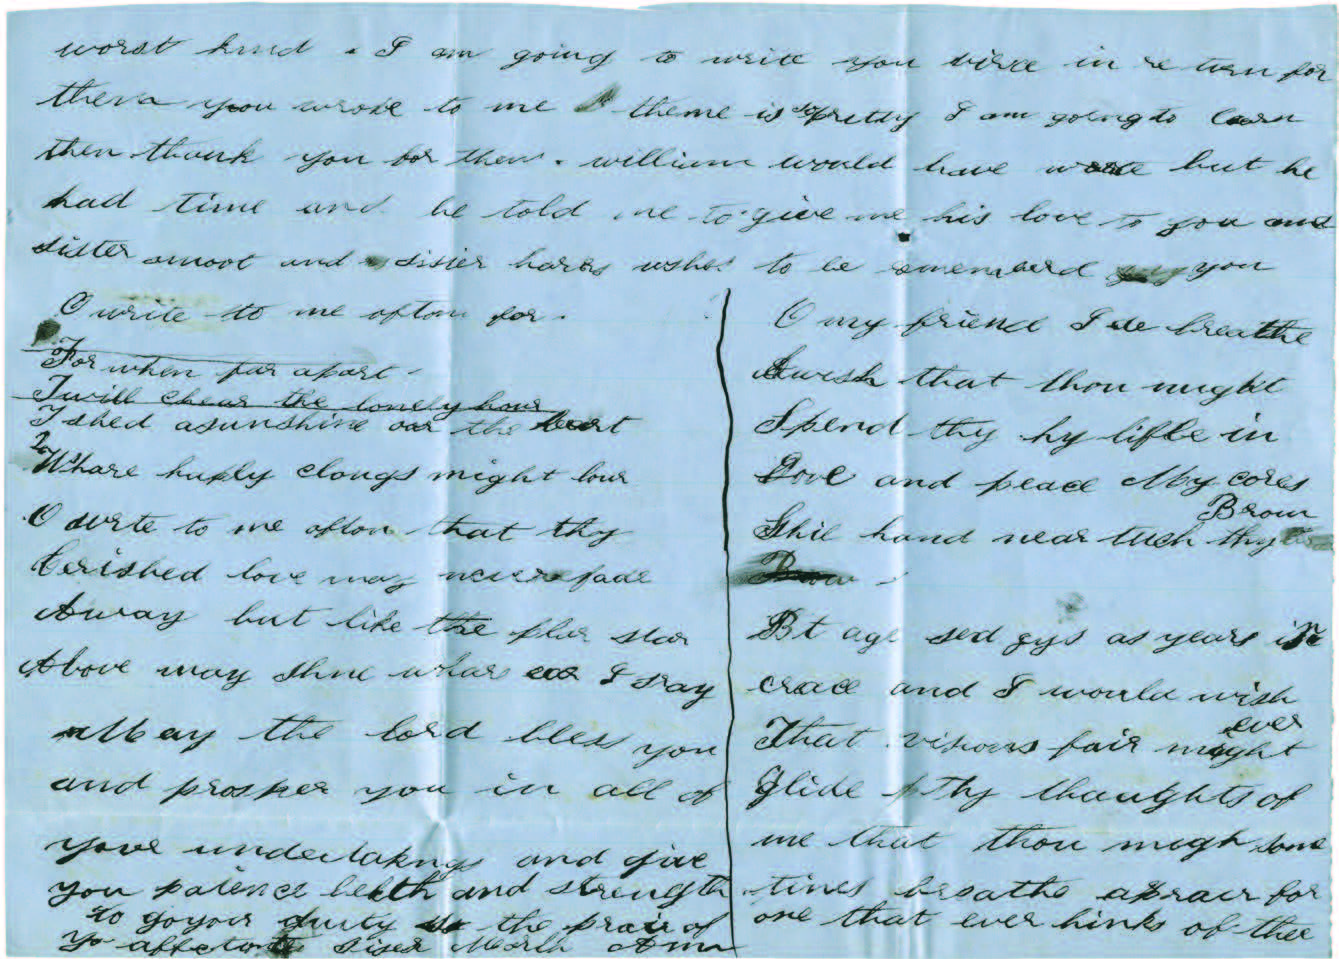 worst kind . I am going to write you virce in return for
them you wrote to me theme is so pretty I am going to learn
then thank you for them . william would have wrote but he
had time and he told me to give me his love to you and
sister smoot and sister harris to be rememberd you
O write to me often for .
For when far apart -
I will chear the lonely hour
I shed a sunshine oar the heart
2 Whare haply clougs might lour
O write to me often that thy
Cerished love may never fade
Away but like the star
Above may shine whare ear I stay
May the lord bless you
and prosper you in all of
youre undertakngs and give
you patence and strength
to go your duity the prair of
Yo affectonate sister Marth Ann
O my friend I de breathe
I wish that thou might
Spend thy hy lifle in
Love and peace May cores
Brow
hand near tuch thy
Brow
Bt age sed gys as years in
crace and I would wish
ever
That visions fair might
Glide Thy thoughts of
me that thou migh some
times breathe a prair for
one that ever hinks of thee